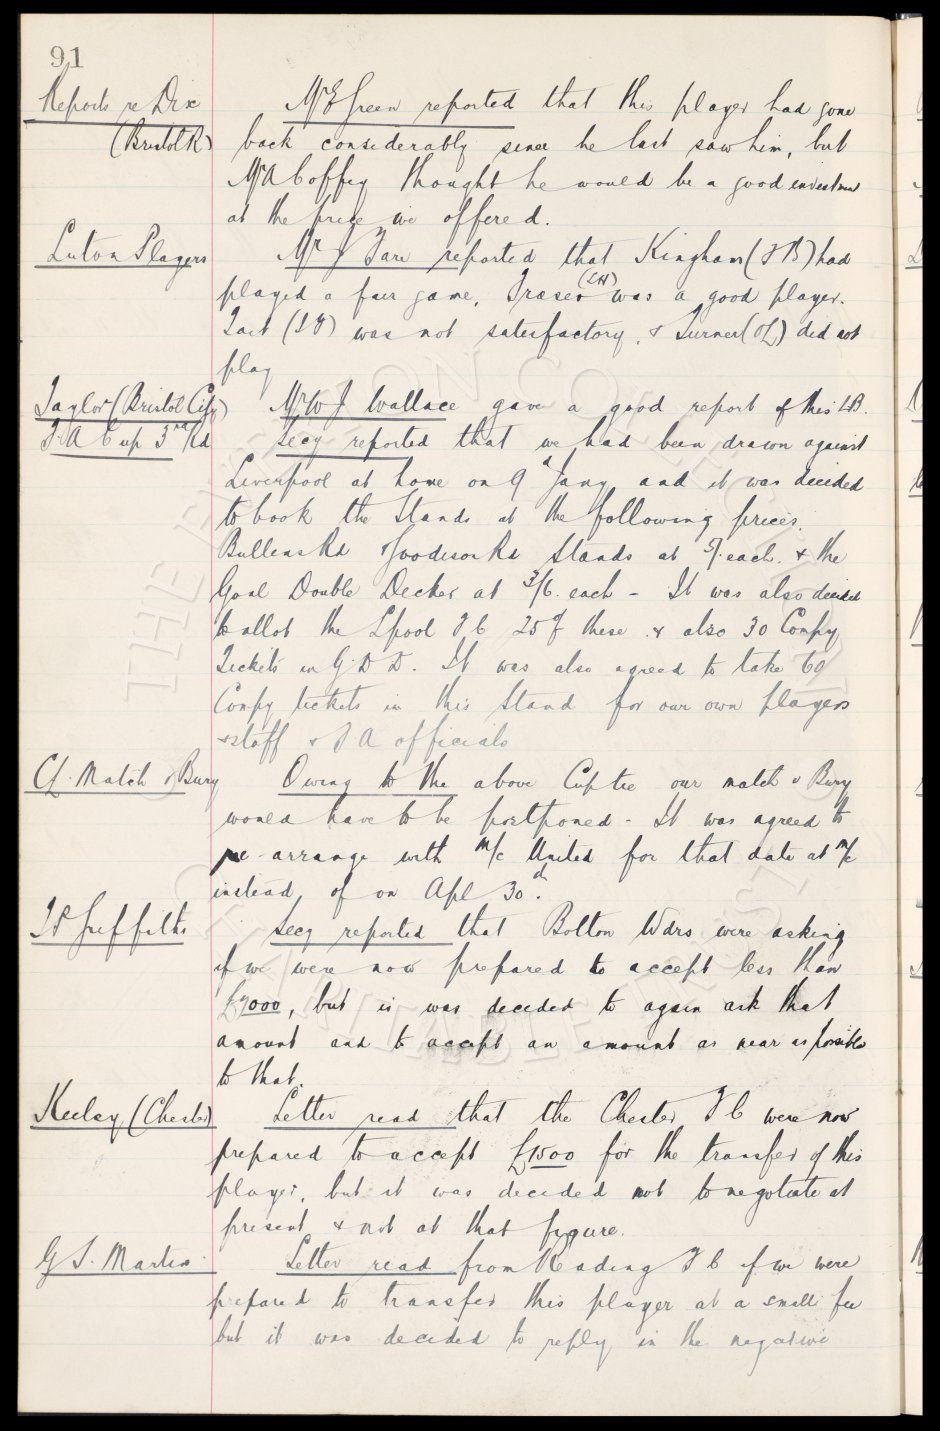 91
Reports re Dix
(Bristol R)
Mr E Green reported that this player had gone
back considerably since he last saw him, but
Mr A Coffey thought he would be a good investmt
at the price we offered.
Luton Players
Mr J Fare reported that Kingham (FB) had
played a fair game, Fraser (LH) was a good player.
Tait (IF) was not satisfactory, & Turner (OL) did not
play
Taylor (Bristol City)
Mr W J Wallace gave a good report of this LB.
F.A Cup 3rd Rd
Secy reported that we had been drawn against
Liverpool at home on 9th Jany and it was decided
to book the Stands at the following prices.
Bullens Rd & Goodison Rd Stands at 5/- each. & the
Goal Double Decker at 3/6. each - It was also decided
to allot the Lpool F C 25 of these & also 30 Compy
Tickets in G. D D. It was also agreed to take 60
Compy tickets in this Stand for our own players
& staff & F A officials
CL. Match v Bury
Owing to the above Cup tie our match v Bury
would have to be postponed - It was agreed to
re-arrange with M/c United for that date at M/c
instead of on Apl 30th.
T P Griffiths
Secy reported that Bolton Wdrs were asking
if we were now prepared to accept less than
£7000, but it was decided to again ask that
amount and to accept an amount as near as possible
to that.
Keeley (Chester)
Letter read that the Chester F C were now
prepared to accept £1500 for the transfer of this
player, but it was decided not to negotiate at
present & not at that figure.
G S. Martin
Letter read from Reading F C if we were
prepared to transfer this player at a small fee
but it was decided to reply in the negative
THE EVERTON COLLECTION
CHARITABLE TRUST